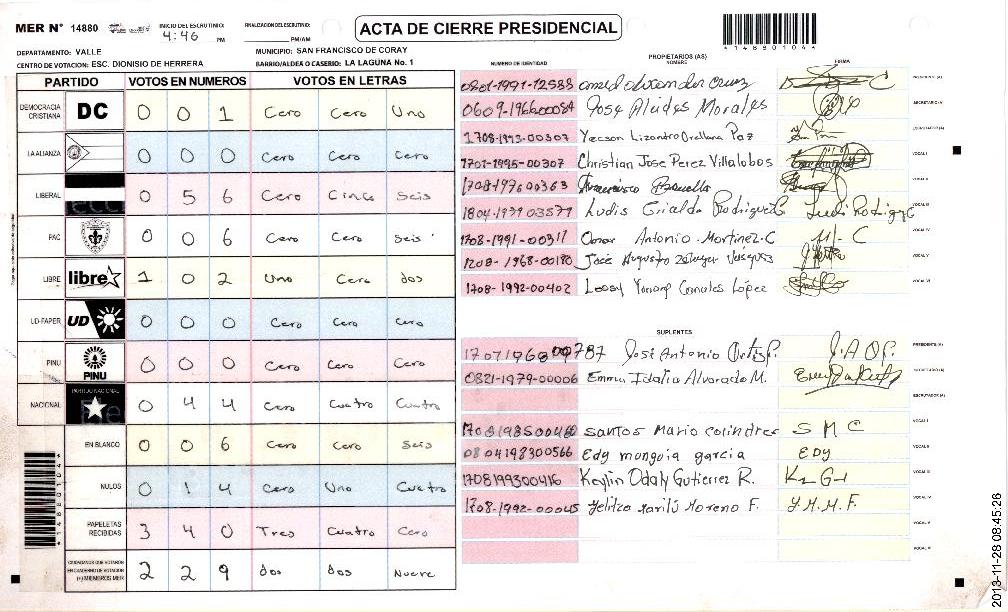 MER N° 14880 INICIO DEL ESCRUTINIO: 4:46 PM FINALIZACION DEL ESCRUTINIO: PM/AM
ACTA DE CIERRE PRESIDENCIAL
14880104
DEPARTAMENTO: VALLE MUNICIPIO: SAN FRANCISCO DE CORAY
CENTRO DE VOTACION: ESC. DIONISIO DE HERRERA BARRIO/ALDEA O CASERIO: LA LAGUNA No. 1
PARTIDO VOTOS EN NUMEROS VOTOS EN LETRAS
DEMOCRACIA CRISTIANA DC 0 0 1 Cero Cero Uno
LA ALIANZA 0 0 0 Cero Cero Cero
LIBERAL 0 5 6 Cero Cinco Seis
PAC 0 0 6 Cero Cero Seis
LIBRE libre 1 0 2 Uno Cero dos
UD-FAPER UD 0 0 0 Cero Cero Cero
PINU PINU 0 0 0 Cero Cero Cero
NACIONAL PARTIDO NACIONAL 0 4 4 Cero Cuatro Cuatro
EN BLANCO 0 0 6 Cero Cero Seis
NULOS 0 1 4 Cero Uno Cuatro
PAPELETAS RECIBIDAS 3 4 0 Tres Cuatro Cero
CIUDADANOS QUE VOTARON EN CUADERNO DE VOTACION (+) MIEMBROS MER 2 2 9 dos dos Nueve
14880104
NUMERO DE IDENTIDAD PROPIETARIOS (AS) NOMBRE FIRMA
0801-1991-12583 PRESIDENTE (A)
0609-196600084 Jose Alcides Morales SECRETARIO (A)
1708-1993-00307 Yecson Lizandro Orellana Paz ESCRUTADOR (A)
1701-1995-00307 Christian Jose Perez Villalobos VOCAL I
1708-197600363 Francisco VOCAL II
1804-1979 03877 Ludis Giralda Rodriguez C VOCAL III
1708-1991-00317 Omar Antonio Martinez C VOCAL IV
1708-1968-00180 José Augusto VOCAL V
1708-1992-00402 Canales López VOCAL VI
SUPLENTES
1707196800787 José Antonio Ortiz P. J.A.O.P. PRESIDENTE (A)
0821-1979-00006 Emma Idalia Alvarado M. SECRETARIO (A)
ESCRUTADOR (A)
1708198500460 Santos Mario Colindres S M C VOCAL I
0804198300566 Edy munguia garcia EDY VOCAL II
1708199300416 Keylin Odaly Gutierrez R. VOCAL III
1708-1992-00045 Yelitza Marilú Moreno F. Y.M.M.F. VOCAL IV
VOCAL V
VOCAL VI
2013-11-28 08:45:26